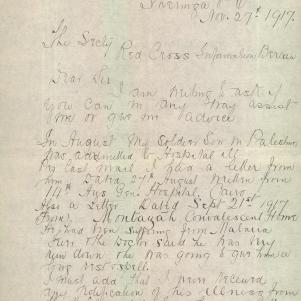 Nov. 27th 1917.
The Secty Red Cross Information Bureau
Dear Sir
I am writing to ask if
you can in any way assist
me or give me advice
In August My Soldier Son in Palestine
was admitted to Hospital ill
By last mail I had a letter from
him Dated 27th August written from
Aus Gen Hospital Cairo
Also a letter Dated Sept 21st 1917
(from) Montazah Convalescent Home
He had been suffering from Malaria
Fever the Doctor said he was very
run down & was going to give him a
long rest &
I must add that I never received
any notification of his illness from